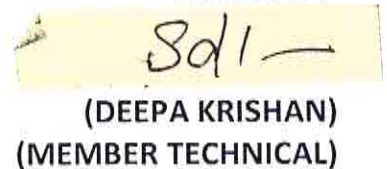 Sd/-
(DEEPA KRISHAN)
(MEMBER TECHNICAL)